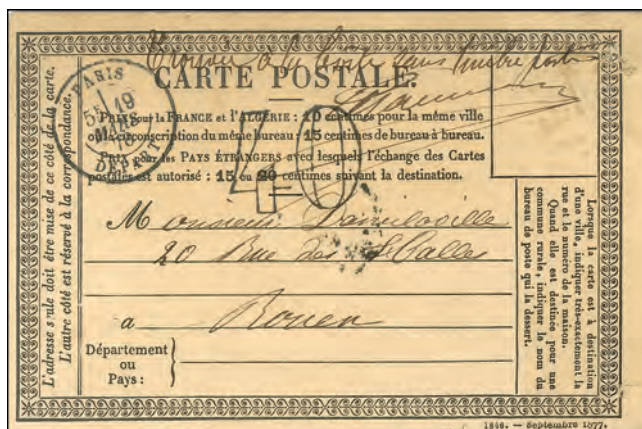 Trouvée à la boîte sans timbre poste
CARTE POSTALE.
PARIS
5E 19
MARS
78
DÉPART
Prix pour la FRANCE et l'ALGÉRIE : 10 centimes pour la même ville
ou la circonscription du même bureau : 15 centimes de bureau à bureau.
Prix pour les PAYS ÉTRANGERS avec lesquels l'échange des Cartes
postales est autorisé : 15 ou 20 centimes suivant la destination.
40
Monsieur
20 Rue des
à Rouen
Département
ou
Pays :
L'adresse seule doit être mise de ce côté de la carte.
L'autre côté est réservé à la correspondance.
Lorsque la carte est à destination
d'une ville, indiquer très-exactement la
rue et le numéro de la maison.
Quand elle est destinée pour une
commune rurale, indiquer le nom du
bureau de poste qui la dessert.
1846. — Septembre 1877.